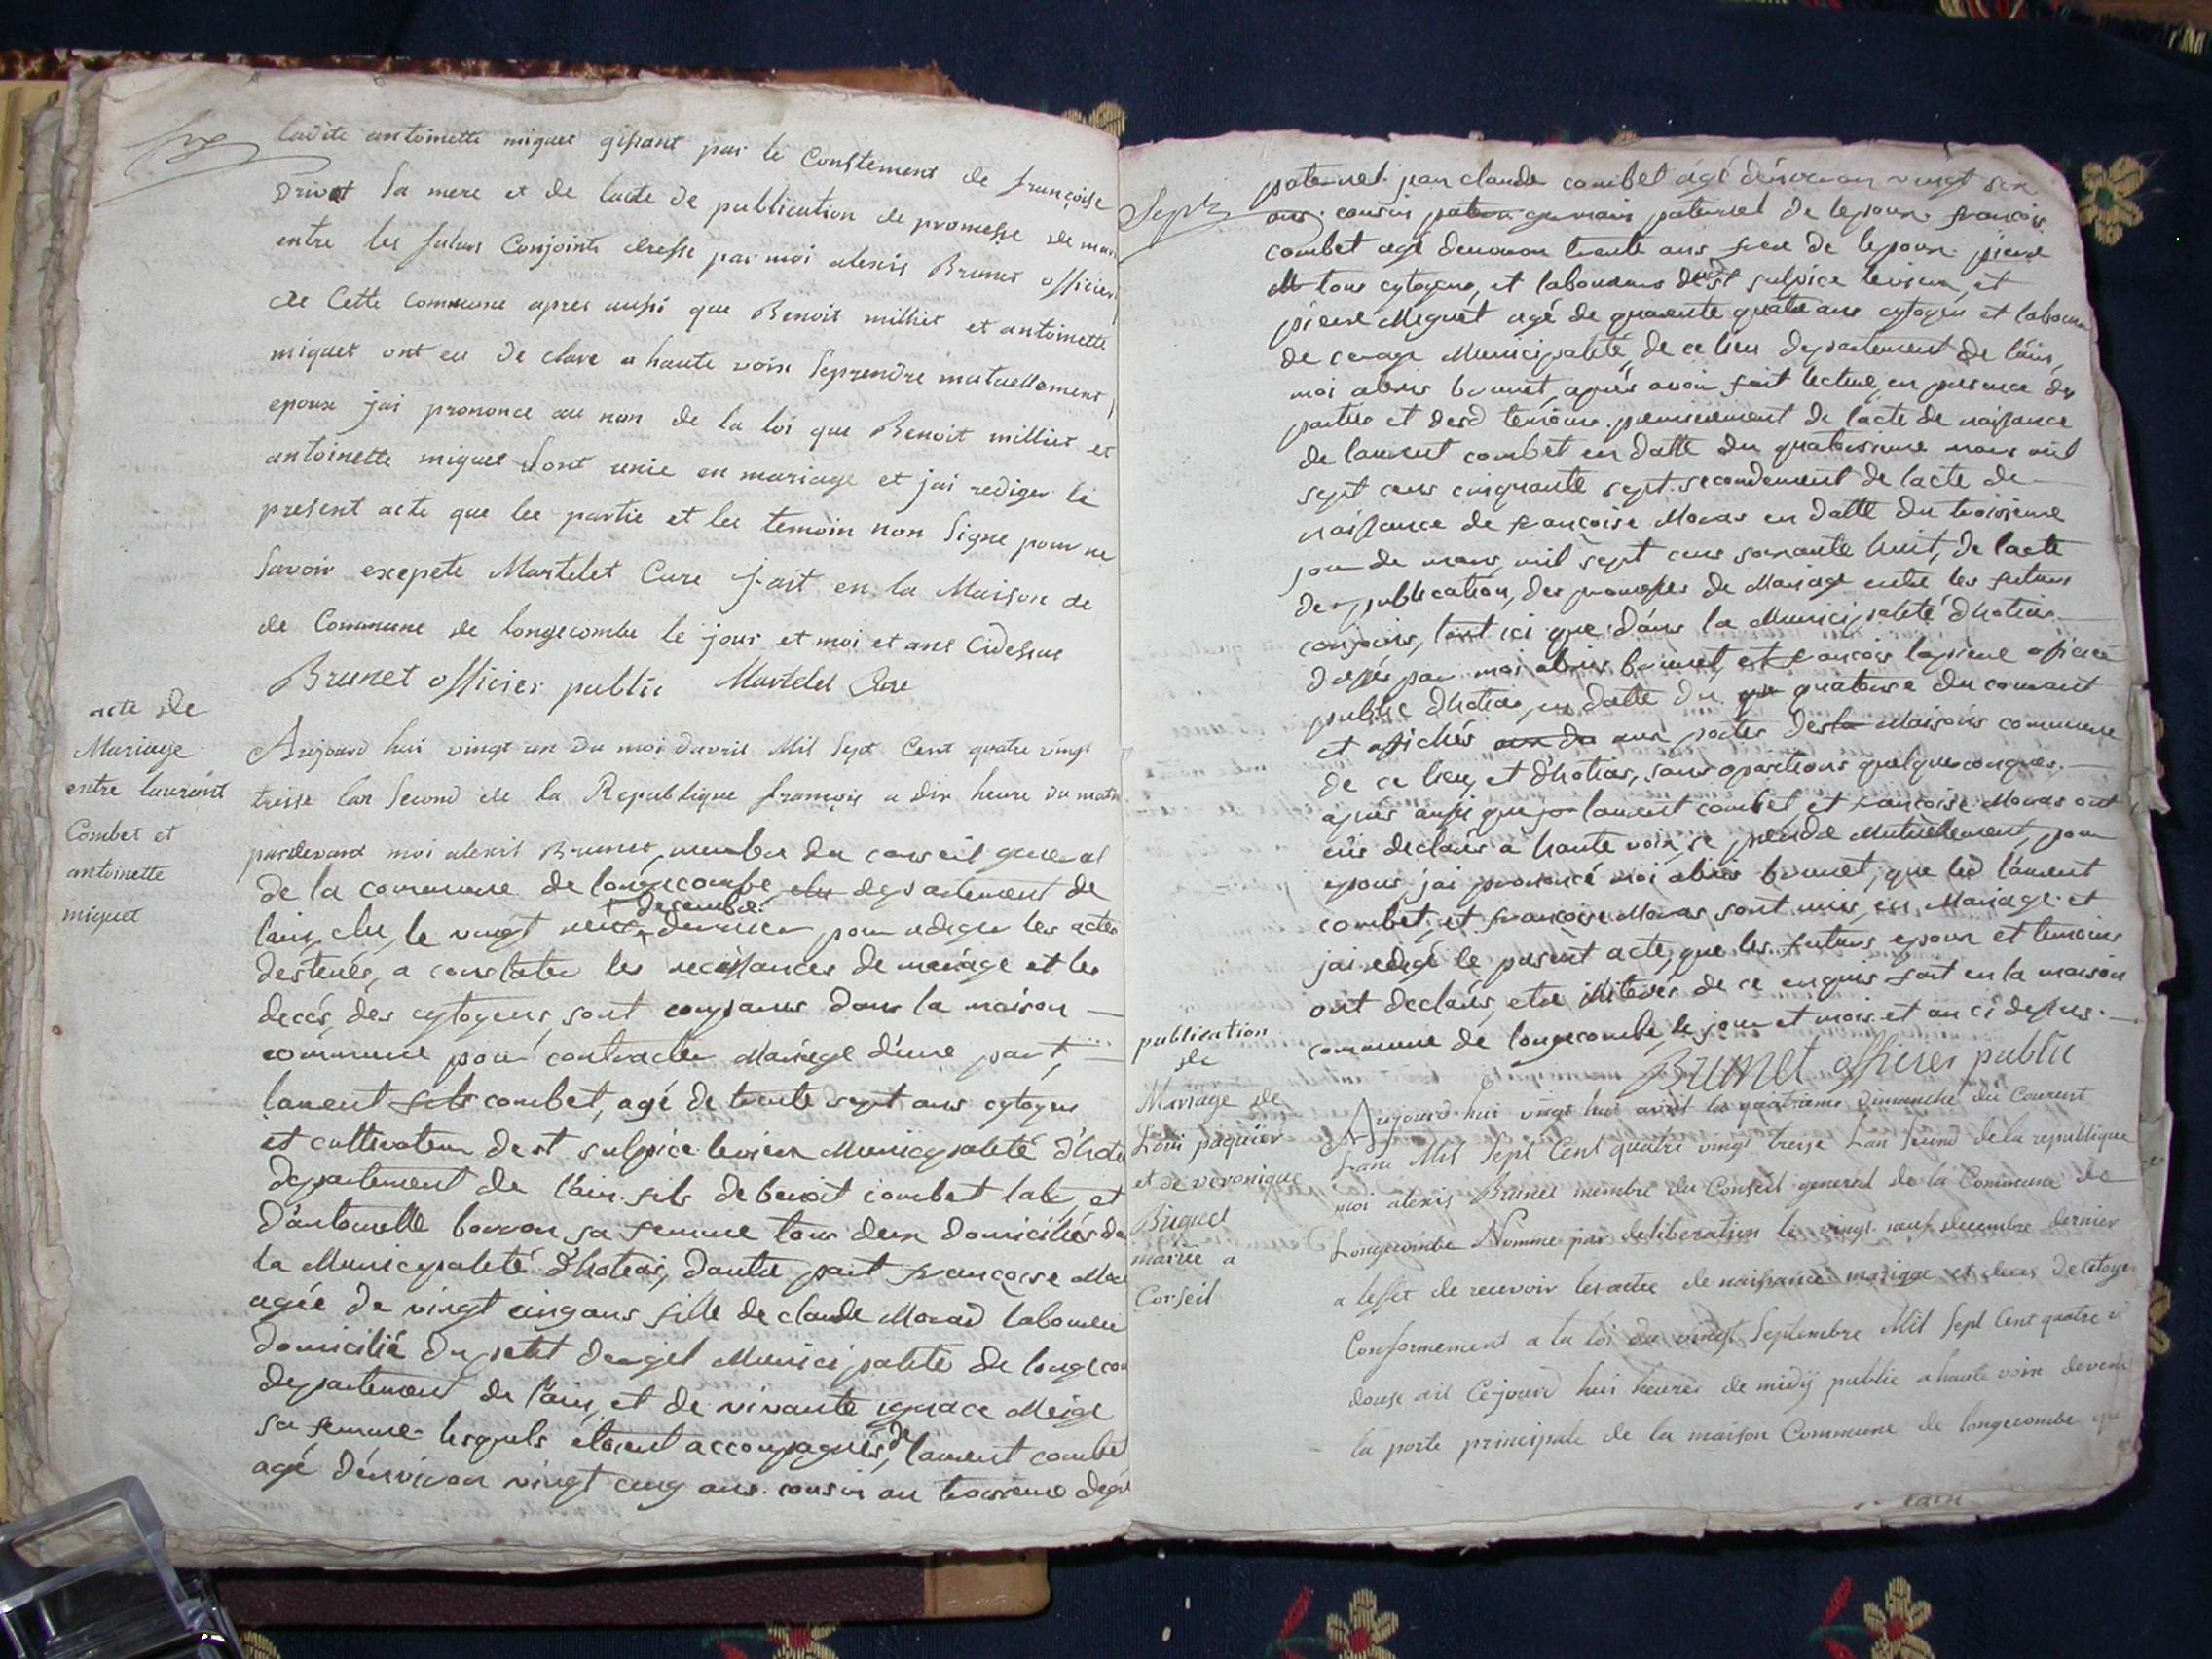 ladite antoinette miguet gissant par le Constement de françoise
Privat Sa mere et de lacte de publication de promesse de mari
entre les futurs Conjoints dresse par moi alexis Brunet officier
de Cette commune apres aussi que Benoit millier et antoinette
miguet ont eu de clare a haute voix Seprendre mutuellement
epoux jai prononce au non de la loi que Benoit millier et
antoinette miguet Sont unie en mariage et jai rediger le
present acte que les partie et les temoin non Signe pour ne
Savoir exepete Martelet Cure fait en la Maison de
de Commune de longecombe le jour et moi et ans Cidessus
Brunet officier public Martelet Cure
acte de
Mariage
entre laurent
Combet et
antoinette
miguet
Aujourd hui vingt un du moi davril Mil Sept Cent quatre vingt
treise lan Second de la Republique françois a dix heure du matin
pardevant moi alexis Brunet, membre du conseil general
de la commune de longecombe, elu departement de
lain, elu, le vingt neuf decembre dernier pour rediger les actes
destinés, a constater les naissances de mariage et les
decés, des cytoyens, sont comparus dans la maison
commune pour contracter Mariage d'une part,
laurent fils combet, agé de trente sept ans cytoyen
et cultivateur de st sulpice levieux Municipaleté d'hoti
departement de l'ain. fils de benoit combet lab, et
d'antoinette borron sa femme tous deux domiciliés de
la Municipaleté d'hotias, dautre part francoise Mor
agée de vingt cinq ans fille de claude Moras laboureu
domicilié du petit dergit Municipalete de longecom
departement de l'ain, et de vivante ignace Meige
sa femme lesquels étoient accompagnés, de laurent combet
agé dénviron vingt cinq ans. cousin au troisieme degré
Sept
paternel. jean claude combet agé dénviron vingt six
ans. cousin patern germain paternel de lepoux. francois
combet agé denviron trente ans frere de lepoux. pierre
tous cytoyens, et laboureurs dudt st sulpice levieux, et
pierre Miguet agé de quarente quatre ans cytoyen et laboureu
de Municipalité, de ce lieu departement de l'ain,
moi alexis brunet, aprés avoir fait lecture, en presence des
parties et desd temoins. premierement de lacte de naissance
de laurent combet en datte du quatorsieme mars mil
sept cens cinquante sept. secondement de lacte de
naissance de francoise Moras en datte du troisieme
jour de mars, mil sept cens soixante huit, de lacte
de publication, des promesses de Mariage entre les futurs
conjoins, tant ici que dans la Municipaleté dhotias
dressés par moi alexis brunet, et francois lapierre oficier
public dhotias, en datte du qu quatorse du courant
et afichés aux du aux portes desla Maisons commune
de ce lieu, et d'hotias, sans opositions quelquconques.
aprés aussi que jo laurent combet, et francoise Moras ont
eus declarés a haute voix, se prendre Mutuellement, pour
epoux, jai prononcé moi alexis brunet, que led laurent
combet, et francoise Moras sont unis, en Mariage. et
jai redigé le present acte, que les futurs epoux et temoins
ont declarés, etre illiterés de ce enquis fait en la maison
commune de longecombe, le jour et mois et an ci dessus.
Brunet officier public
publication
de
Mariage de
Loui paquier
et de veronique
Biguet
mariée a
Corseil
Aujourd hui vingt huit avril le quatrieme Dimanche du Courent
Lane Mil Sept Cent quatre vingt treise Lan Second de la republique
moi alexis Brunet membre du Conseil general de la Commune de
Longecombe Nomme par deliberation le vingt neuf decembre dernier
a leffet de recevoir les acte de naissance mariage et deces de Citoyen
Conformement a la loi du vingt Septembre Mil Sept Cent quatre vi
douse ait Cejourd hui heures de midij public a haute voix devent
la porte principale de la maison Commune de longecombe que